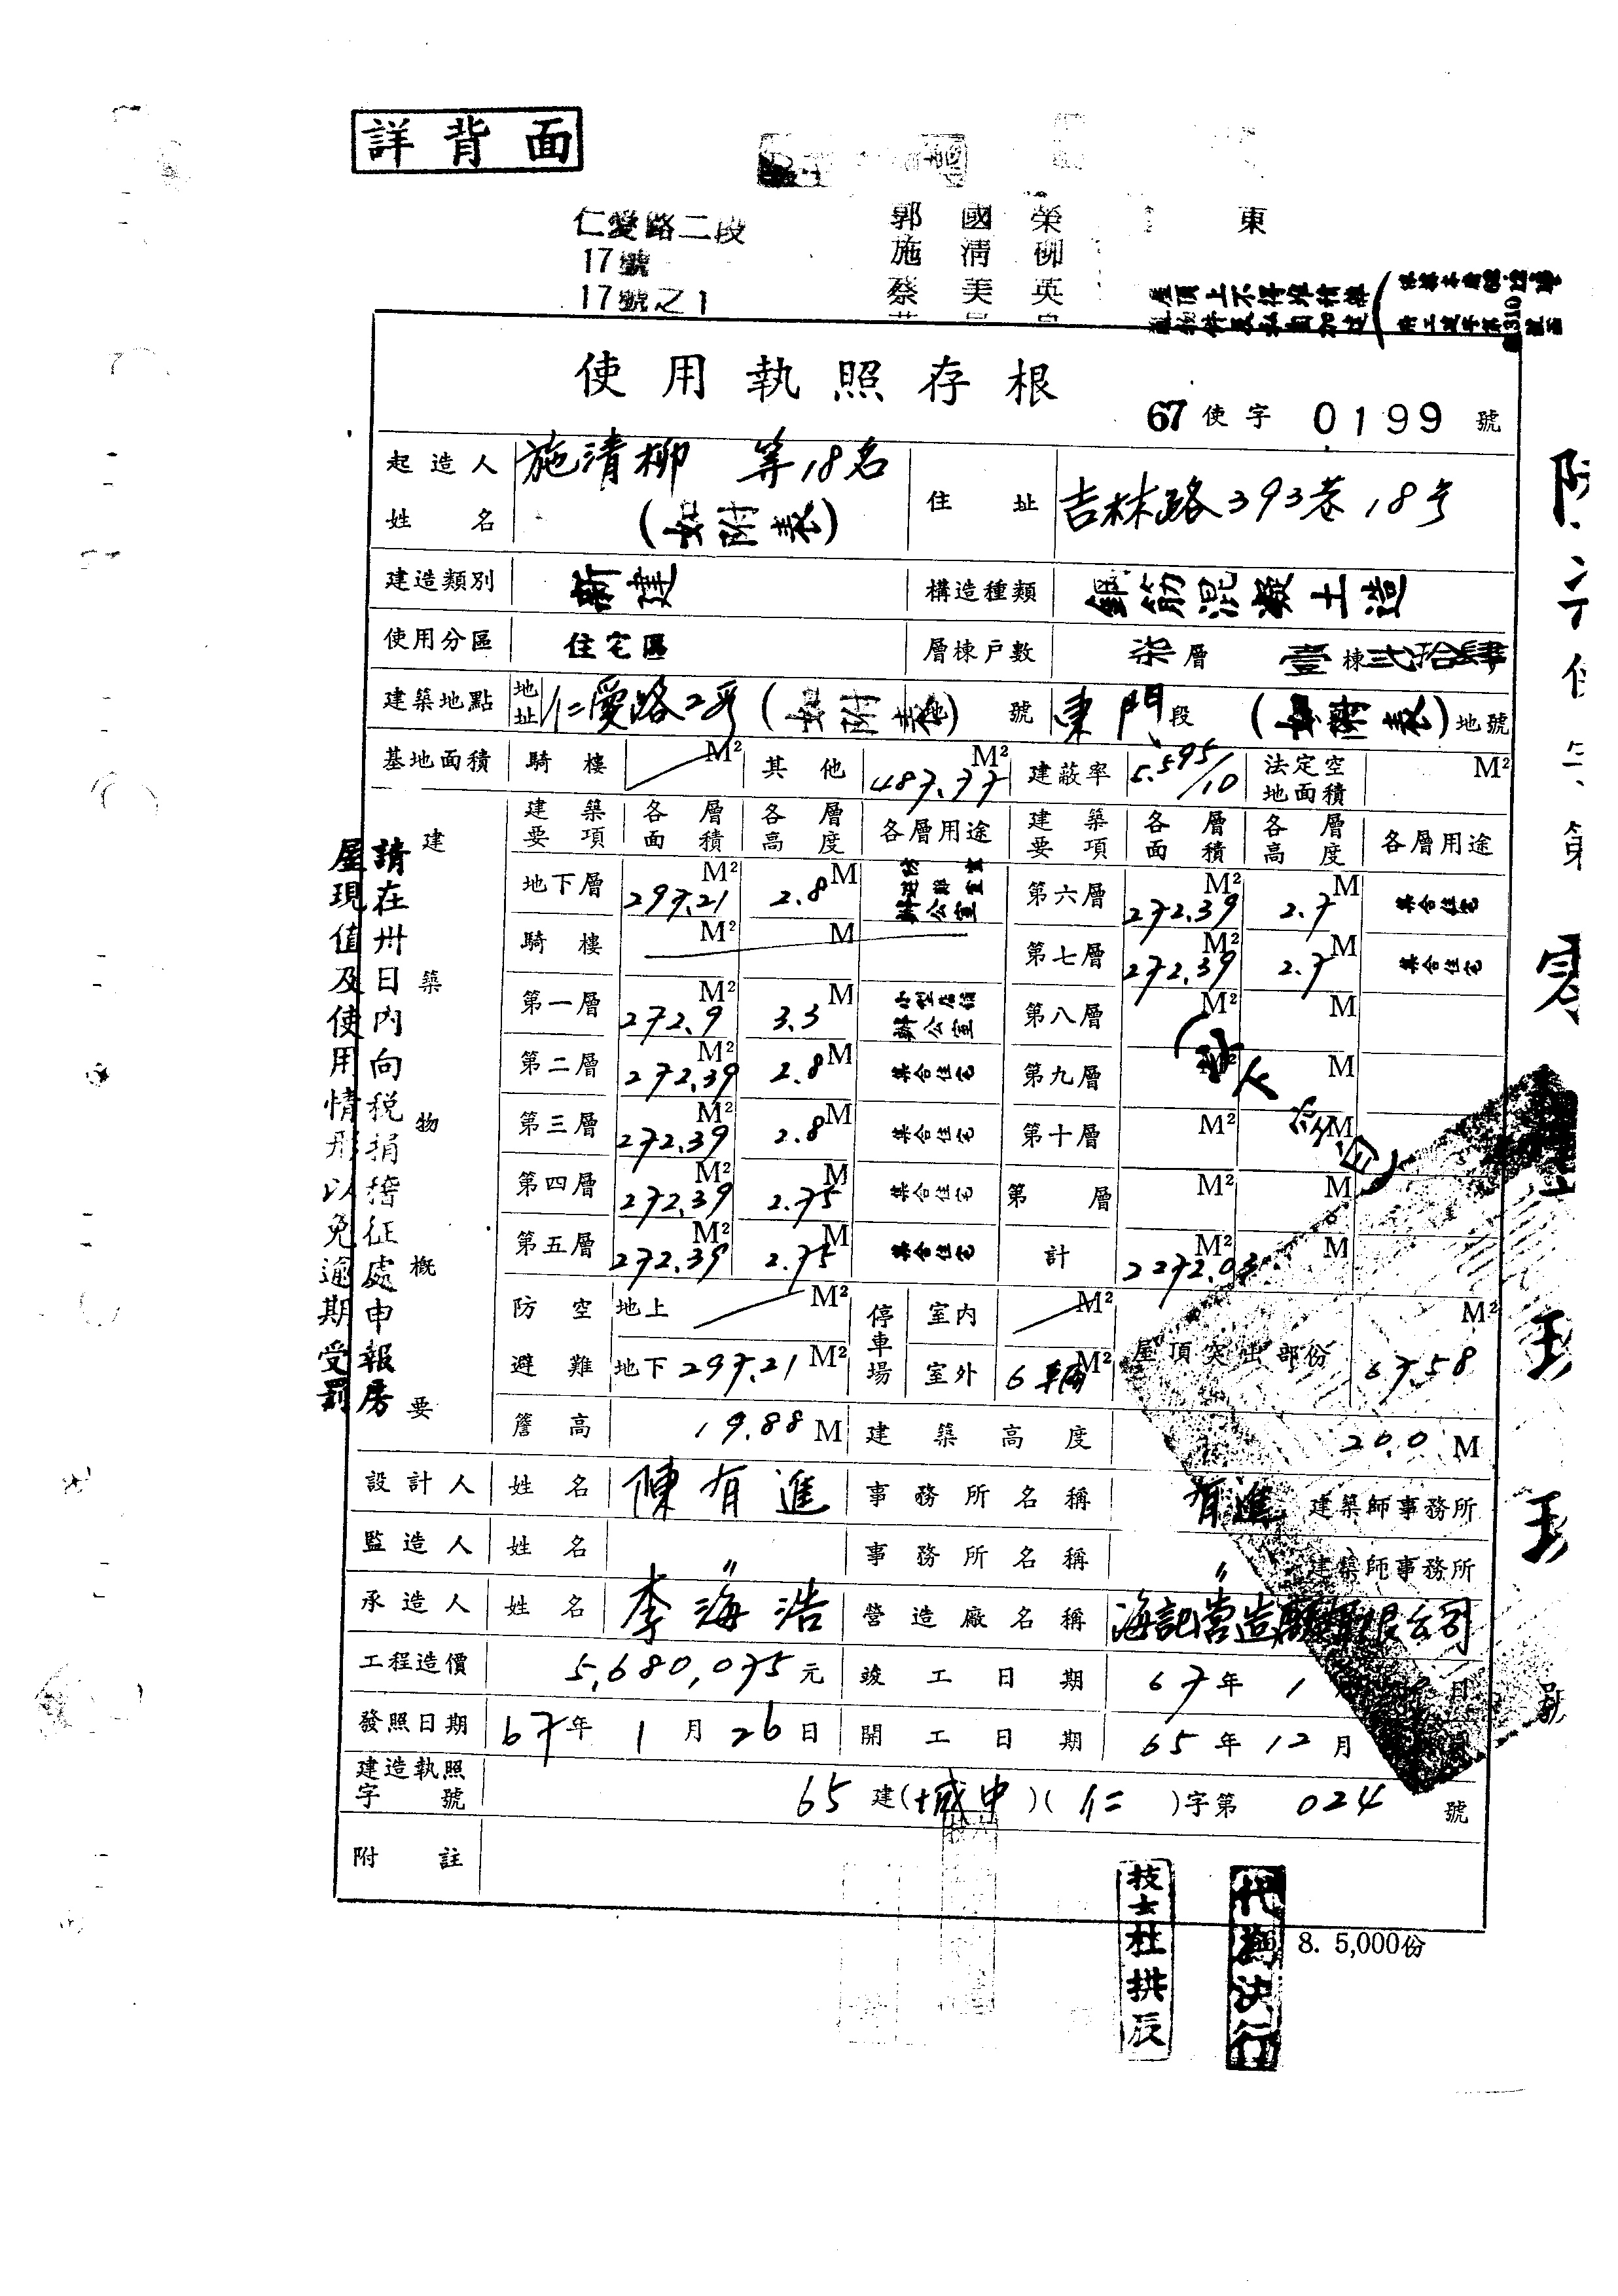 詳背面
仁愛路二段
17號
17號之1
郭國榮
施清柳
蔡美英
東
使用執照存根
67使字0199號
起造人姓名 施清柳 等18名 (如附表) 住址 吉林路393巷18号
建造類別 新建 構造種類 鋼筋混凝土造
使用分區 住宅區 層棟戶數 柒層 壹棟弍拾肆
建築地點 地址 仁愛路2段(如附表) 地號 東門段(如附表)地號
基地面積 騎樓 M² 其他 487.77 M² 建蔽率 5.595/10 法定空地面積 M²
建築物概要
建築要項 各層面積 各層高度 各層用途 建築要項 各層面積 各層高度 各層用途
地下層 297.21 M² 2.8 M 辦公室 第六層 272.39 M² 2.7 M 集合住宅
騎樓 M² M 第七層 272.39 M² 2.7 M 集合住宅
第一層 272.9 M² 3.3 M 辦公室 第八層 M² M
第二層 272.39 M² 2.8 M 集合住宅 第九層 M² M
第三層 272.39 M² 2.8 M 集合住宅 第十層 M² M
第四層 272.39 M² 2.75 M 集合住宅 第 層 M² M
第五層 272.39 M² 2.75 M 集合住宅 計 2272.03 M² M
防空避難 地上 M² 停車場 室內 M² 屋頂突出部份 67.58 M²
地下 297.21 M² 室外 6輛 M²
簷高 19.88 M 建築高度 20.0 M
設計人 姓名 陳有進 事務所名稱 有進 建築師事務所
監造人 姓名 〃 事務所名稱 〃 建築師事務所
承造人 姓名 李海浩 營造廠名稱 海記營造廠有限公司
工程造價 5,680,075元 竣工日期 67年1月 日
發照日期 67年1月26日 開工日期 65年12月
建造執照字號 65建(城中)(仁)字第024號
附註
請在卅日內向稅捐稽征處申報房
屋現值及使用情形以免逾期受罰
技士杜拱辰
代為決行
8. 5,000份